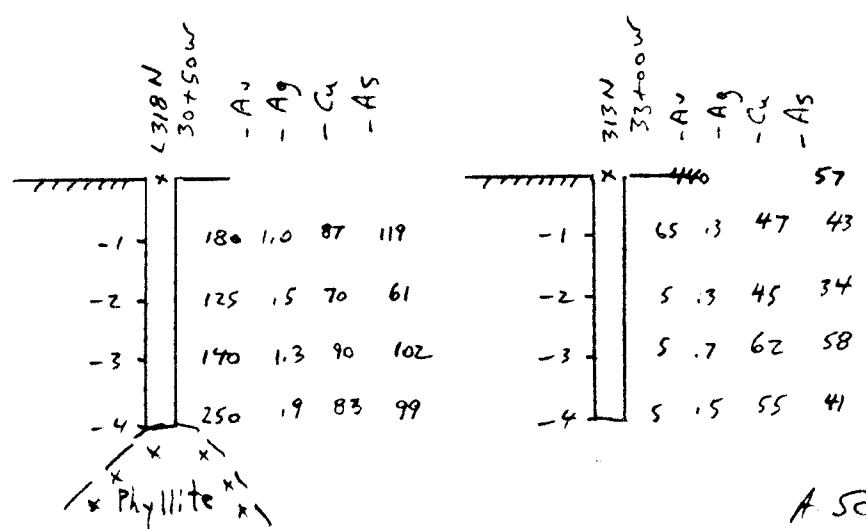 L318N
30+50W
-Au
-Ag
-Cu
-As
-1 180 1.0 87 119
-2 125 .5 70 61
-3 140 1.3 90 102
-4 250 .9 83 99
Phyllite
313N
33+00W
-Au
-Ag
-Cu
-As
440 57
-1 65 .3 47 43
-2 5 .3 45 34
-3 5 .7 62 58
-4 5 .5 55 41